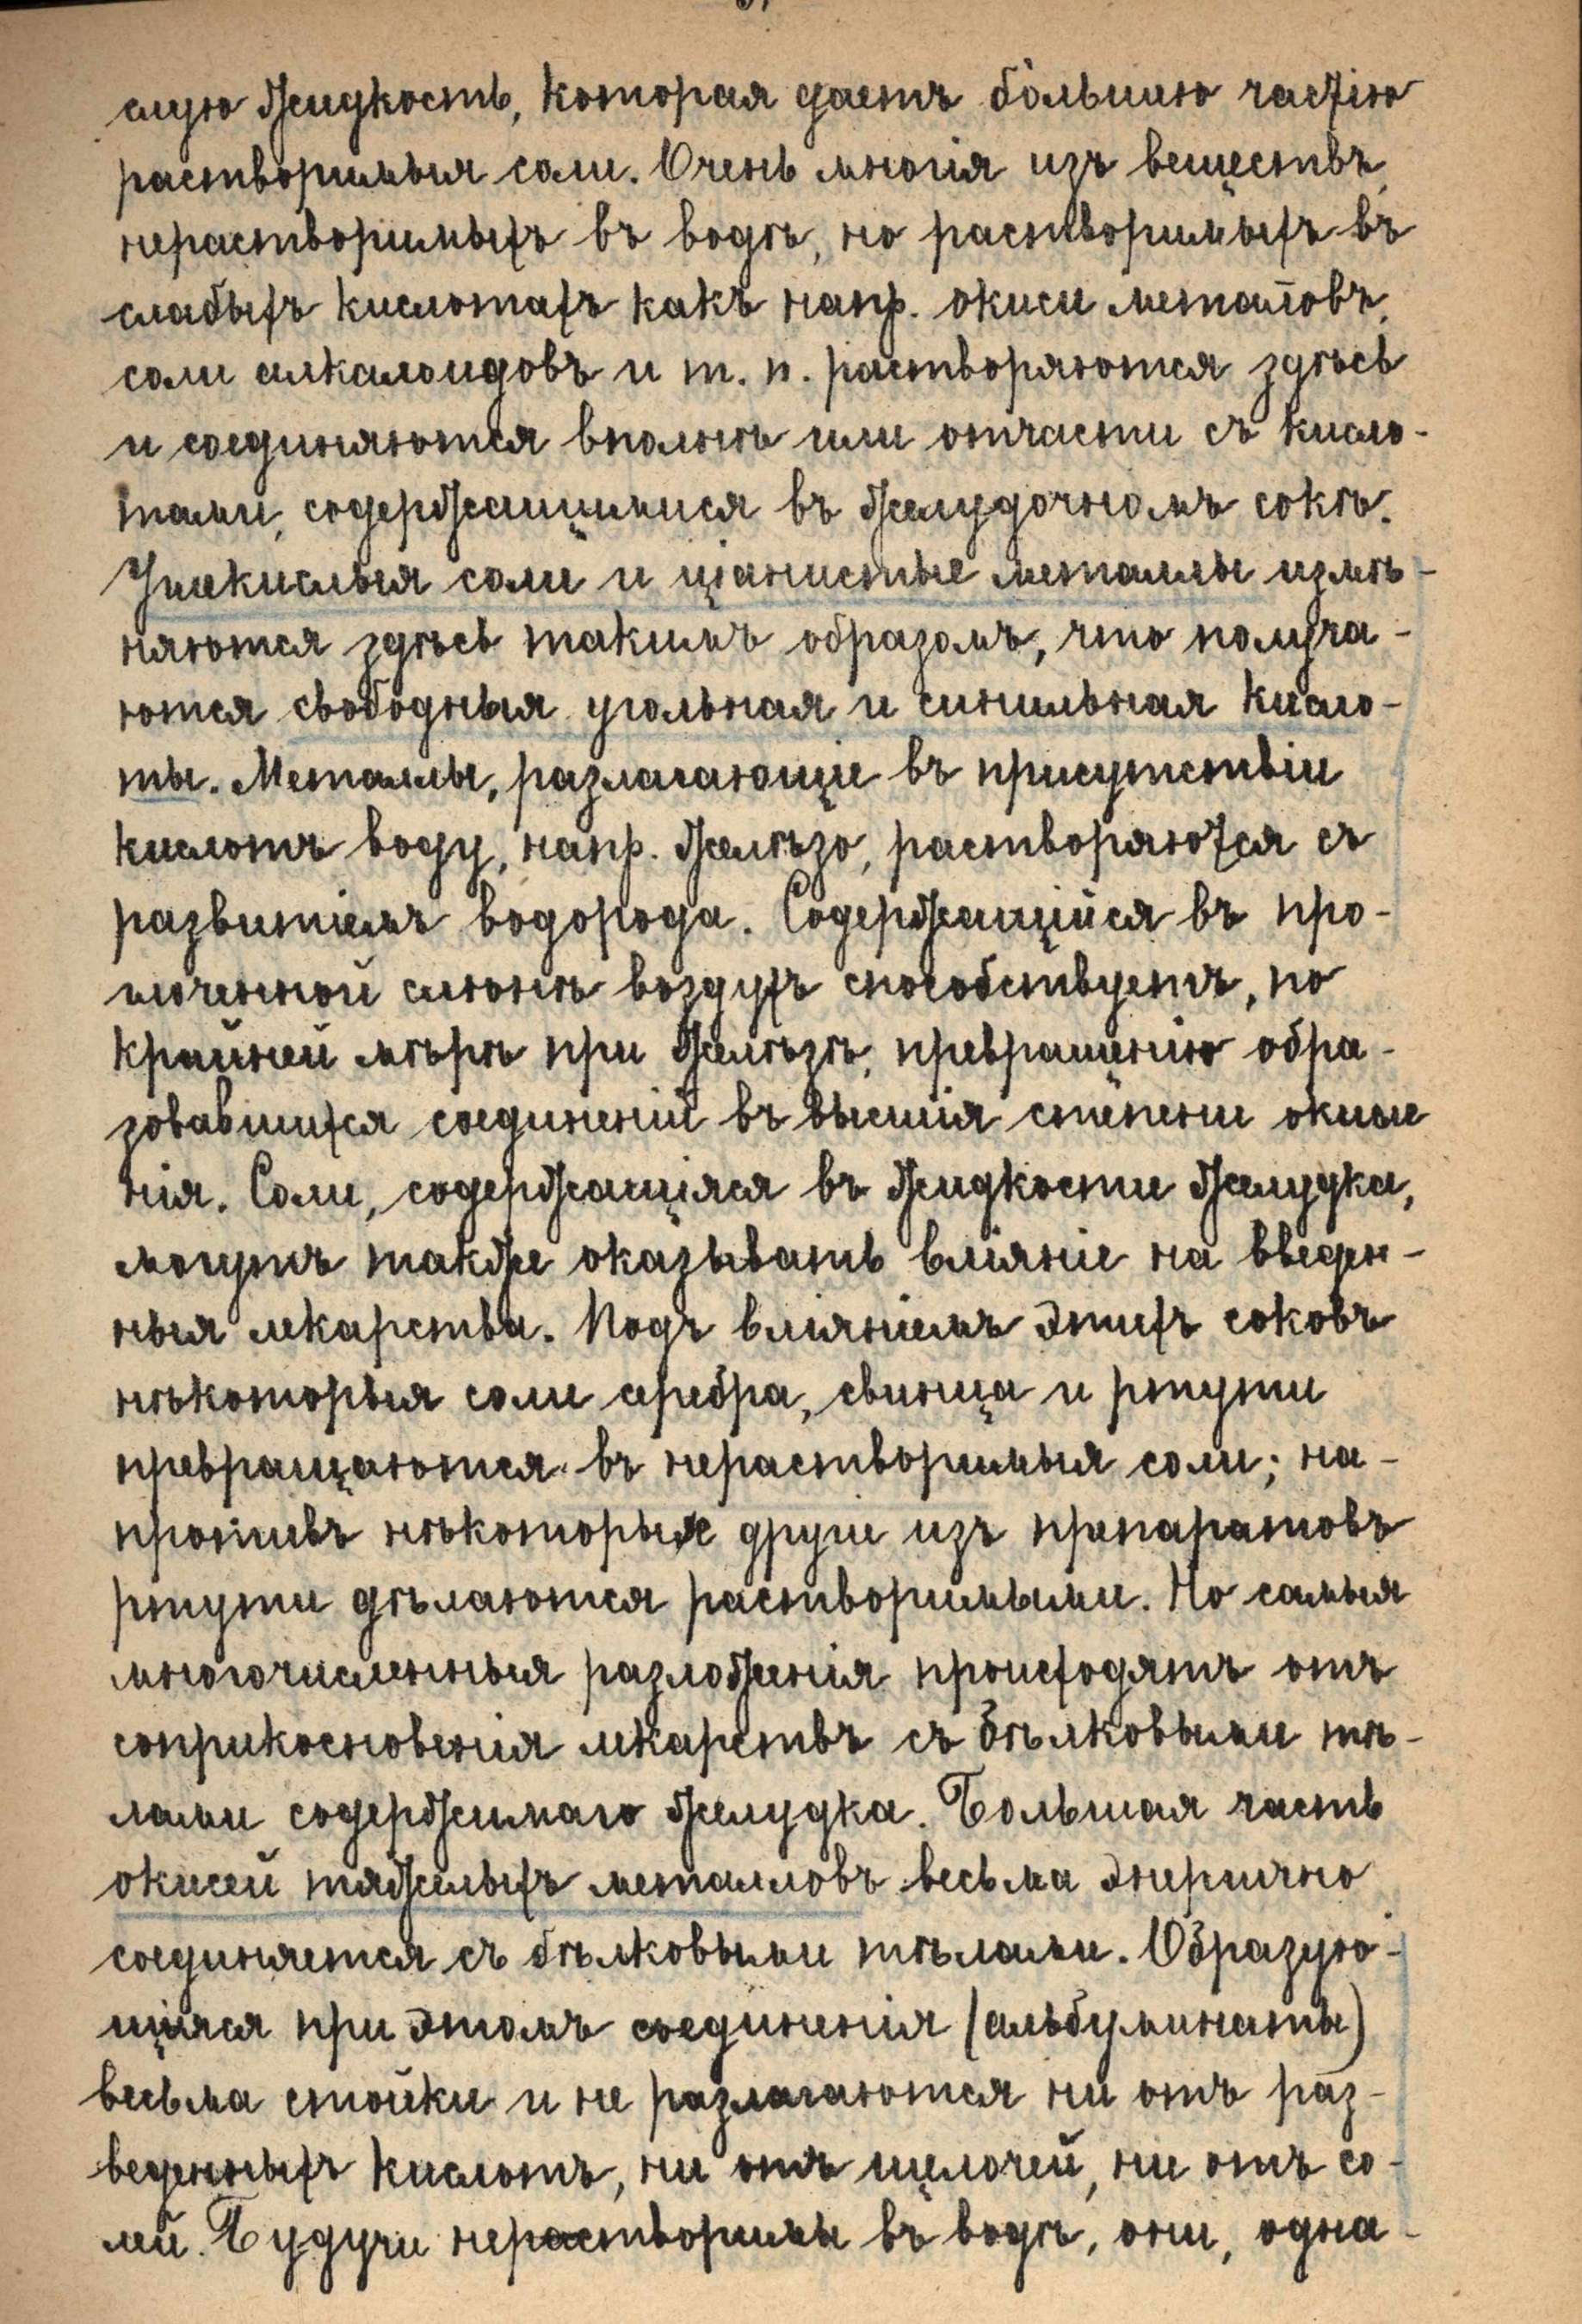 слую жидкость, которая даетъ бо́льшею частію
растворимыя соли. Очень многія изъ веществъ,
нерастворимыхъ въ водѣ, но растворимыхъ въ
слабыхъ кислотахъ какъ напр. окиси металовъ,
соли алкалоидовъ и т. п. растворяются здѣсь
и соединяются вполнѣ или отчасти съ кисло-
тами, содержащимися въ желудочномъ сокѣ.
Углекислыя соли и ціанистые металлы измѣ-
няются здѣсь такимъ образомъ, что получа-
ются свободныя угольная и синильная кисло-
ты. Металлы, разлагающіе въ присутствіи
кислотъ воду, напр. желѣзо, растворяются съ
развитіемъ водорода. Содержащійся въ про-
глоченной слюнѣ воздухъ способствуетъ, по
крайней мѣрѣ при желѣзѣ, превращенію обра-
зовавшихся соединеній въ высшія степени окисле
нія. Соли, содержащіяся въ жидкости желудка,
могутъ также оказывать вліяніе на введен-
ныя лекарства. Подъ вліяніемъ этихъ соковъ
нѣкоторыя соли серебра, свинца и ртути
превращаются въ нерастворимыя соли; на-
противъ нѣкоторые другіе изъ препаратовъ
ртути дѣлаются растворимыми. Но самыя
многочисленныя разложенія происходятъ отъ
соприкосновенія лекарствъ съ бѣлковыми тѣ-
лами содержимаго желудка. Большая часть
окисей тяжелыхъ металловъ весьма энергично
соединяется съ бѣлковыми тѣлами. Образую-
щіяся при этомъ соединенія (альбуминаты)
весьма стойки и не разлагаются ни отъ раз-
веденныхъ кислотъ, ни отъ щелочей, ни отъ со-
лей. Будучи нерастворимы въ водѣ, они, одна-